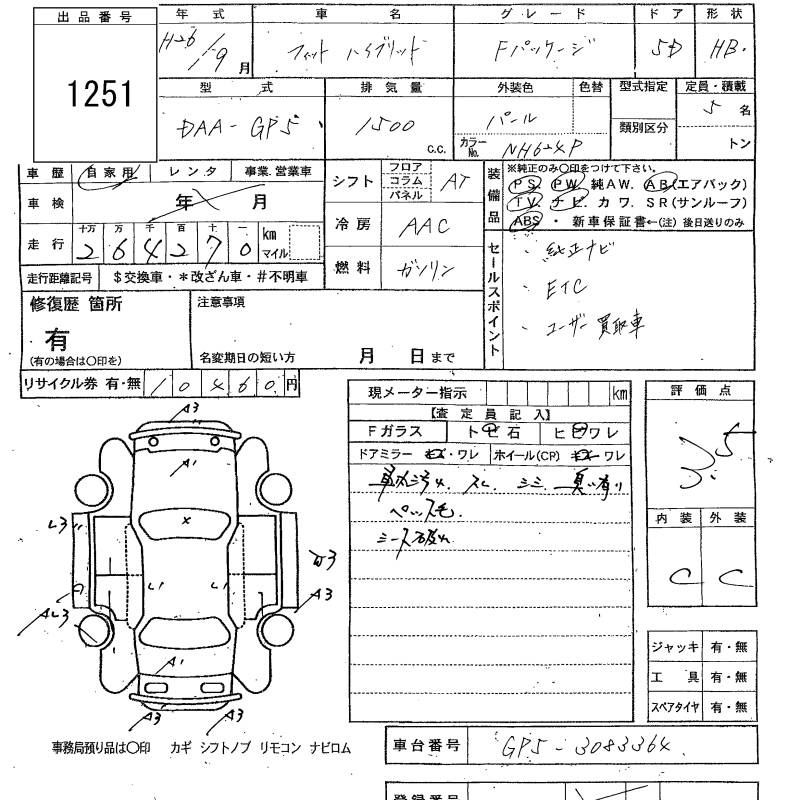 出品番号 年式 車名 グレード ドア 形状
1251 H26/9月 フィット ハイブリッド Fパッケージ 5D HB.
型式 排気量 外装色 色替 型式指定 定員・積載
DAA-GP5 1500 c.c. パール 類別区分 5名
カラーNo. NH624P トン
車歴 自家用 レンタ 事業.営業車 シフト フロア コラム パネル AT 装備品 ※純正のみ〇印をつけて下さい。
PS PW 純AW. AB(エアバック)
車検 年 月 TV ナビ カワ SR(サンルーフ)
冷房 AAC ABS ・ 新車保証書←(注) 後日送りのみ
走行 十万 万 千 百 十 一 km マイル
2 6 4 2 7 0
セールスポイント ・純正ナビ
走行距離記号 $交換車・*改ざん車・#不明車 燃料 ガソリン ・ETC
・ユーザー買取車
修復歴 箇所 注意事項
有
(有の場合は〇印を) 名変期日の短い方 月 日まで
リサイクル券 有・無 10460円
現メーター指示 km 評価点
【査定員記入】 3.5
Fガラス トビ石 ヒビワレ
ドアミラー キズ・ワレ ホイール(CP) キズ・ワレ
スレ シミ 臭い有り
ペット毛.
シート破れ
内装 外装
C C
A3
A1
x
L3
A3
L1 L1
A3
AL3
A1
A3 A3
ジャッキ 有・無
工具 有・無
スペアタイヤ 有・無
事務局預り品は〇印 カギ シフトノブ リモコン ナビロム
車台番号 GP5-3083364
登録番号